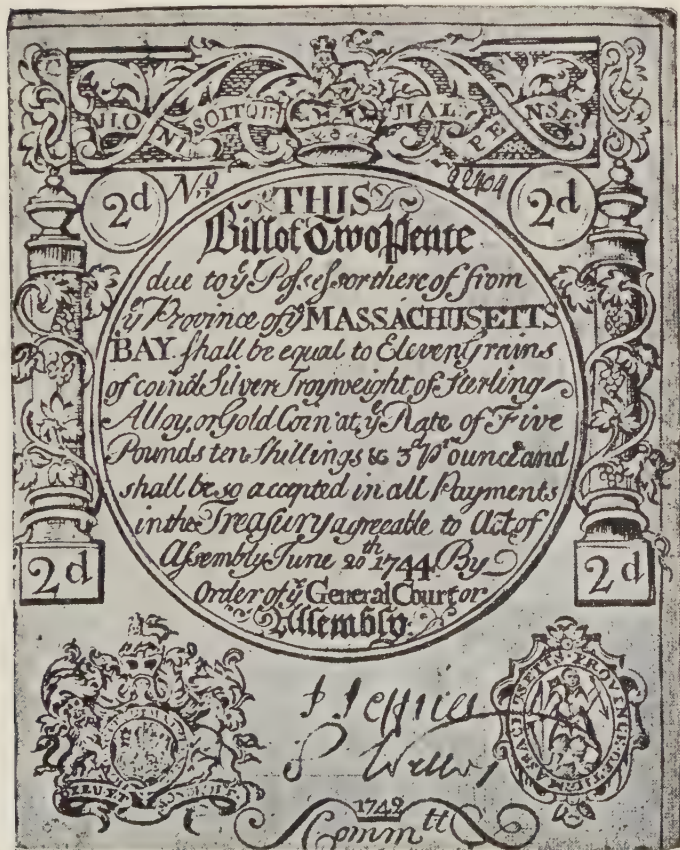 HONI SOIT QUI MAL Y PENSE
2d No 22404 2d
THIS
Bill of Two Pence
due to yͤ Poſseſsor thereof from
yͤ Province of yͤ MASSACHUSETTS
BAY ſhall be equal to Eleven Grains
of coin'd Silver Troyweight of Sterling
Alloy, or Gold Coin at yͤ Rate of Five
Pounds ten Shillings &c 3ᵈ pʳ ounce and
ſhall be so accepted in all Payments
in the Treaſury agreeable to Act of
Aſsembly June 20ᵗʰ 1744 By
Order of yͤ General Court or
Aſsembly.
2d 2d
J Jeffries
S Welles
1742
Commᵗᵗ